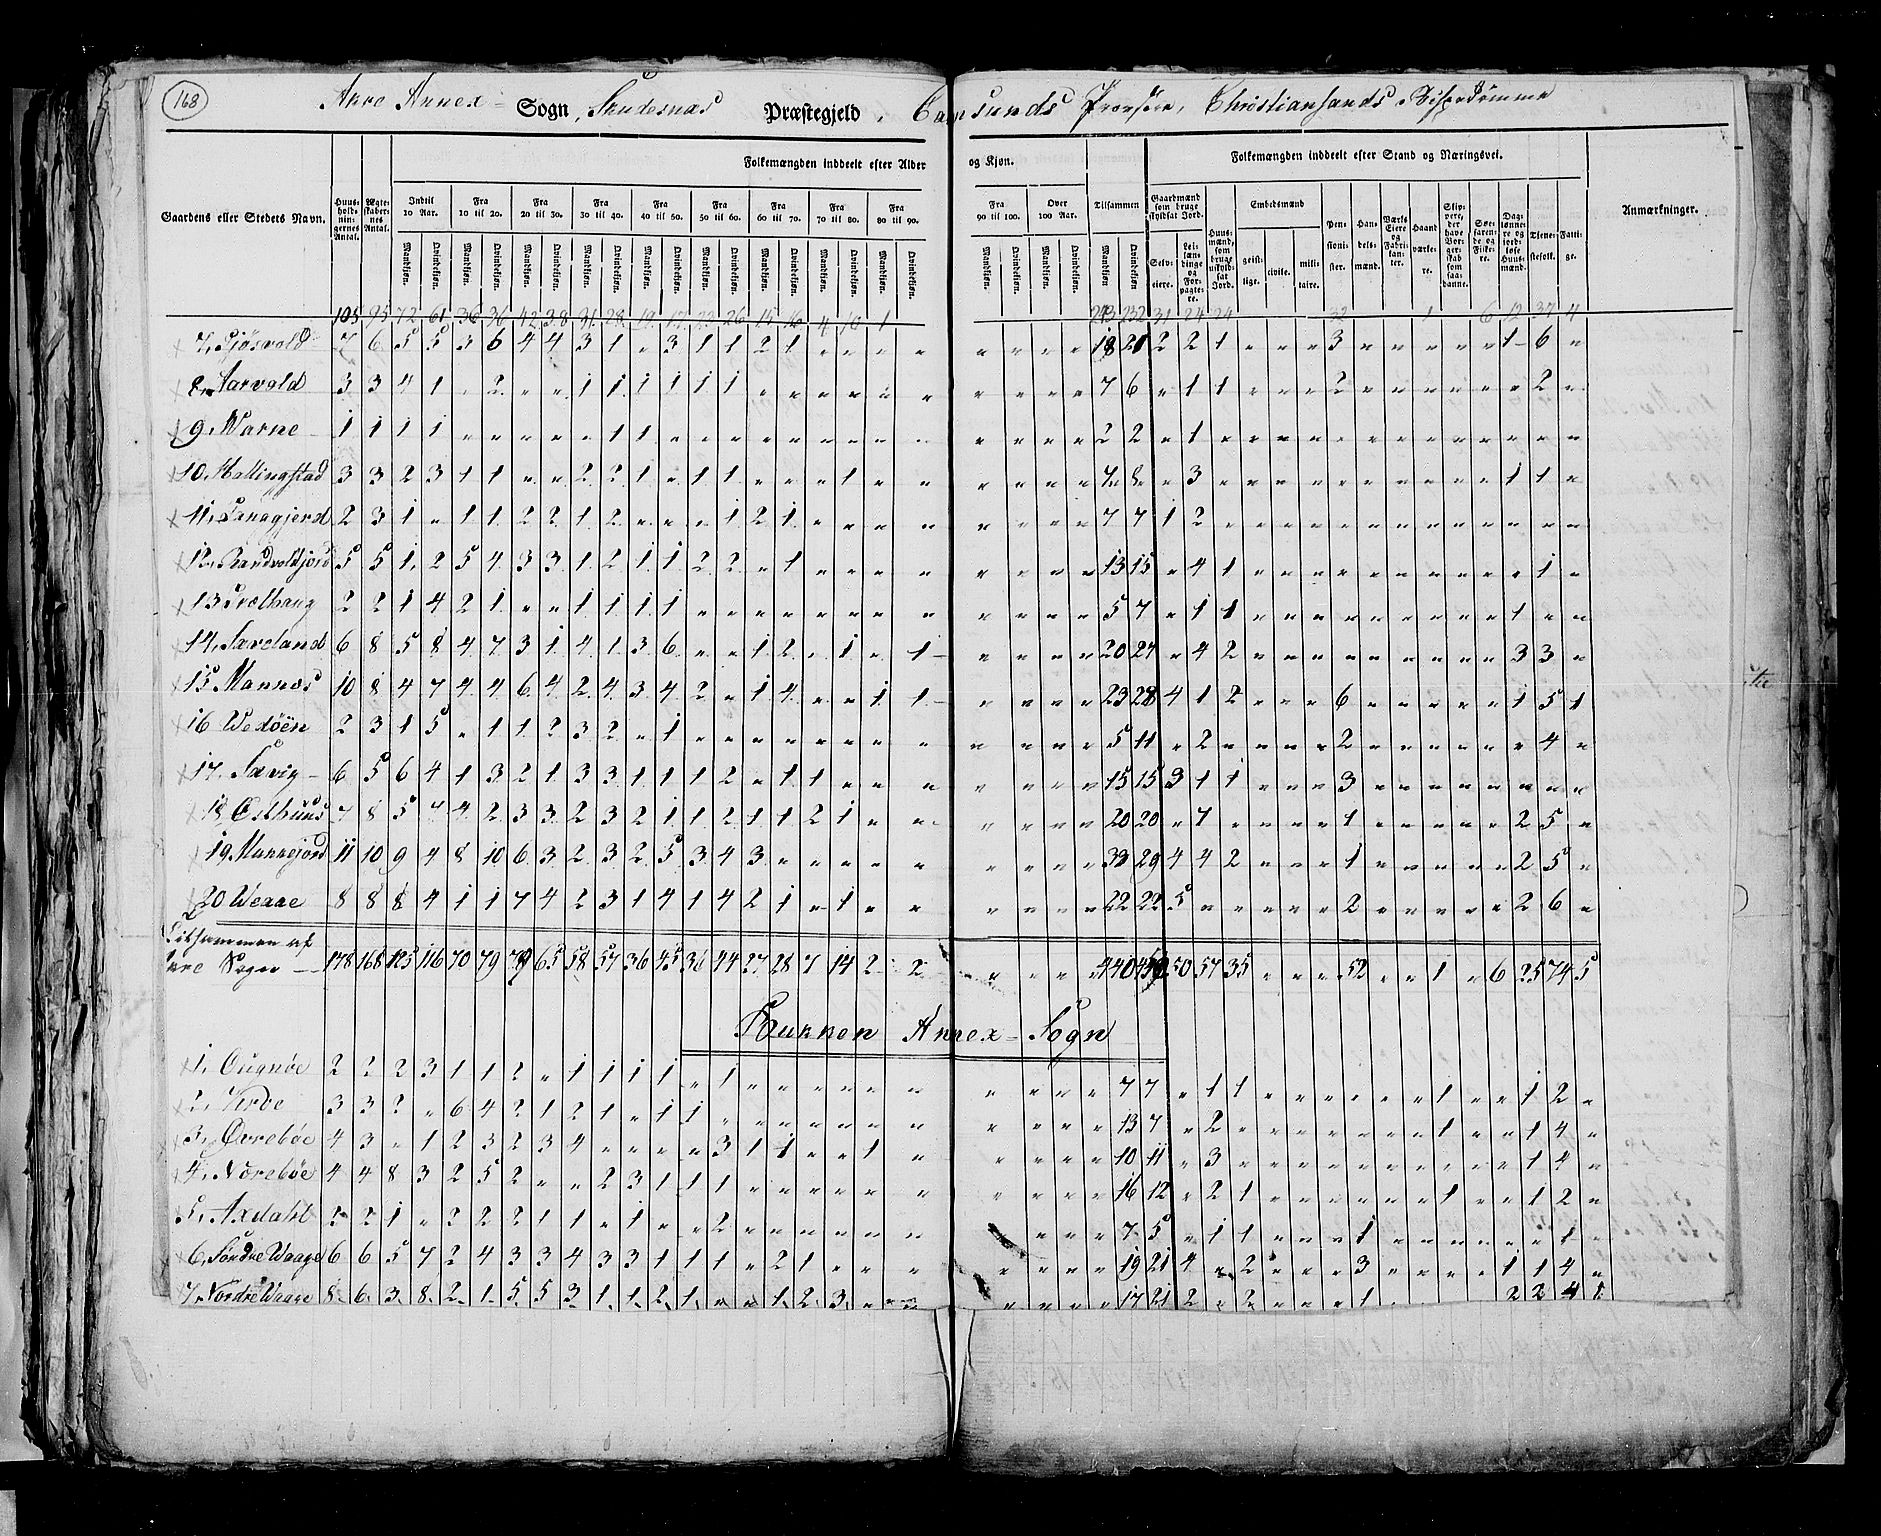 168
Akre Annex Sogn, Skudesnæs Præstegjeld, Carmsunds Provstie, Christiansands Bispedømme
Folkemængden inddeelt efter Alder og Kjøn. Folkemængden inddeelt efter Stand og Næringsvei.
Gaardens eller Stedets Navn. Huusholdningernes Antal. Ægteskabernes Antal. Indtil 10 Aar. Fra 10 til 20. Fra 20 til 30. Fra 30 til 40. Fra 40 til 50. Fra 50 til 60. Fra 60 til 70. Fra 70 til 80. Fra 80 til 90. Fra 90 til 100. Over 100 Aar. Tilsammen Gaardmænd som bruge skyldsat Jord. Huusmænd, som bruge uskyldsat Jord. Embedsmænd Pensionister. Handelsmænd. Værks Eiere og Fabrikanter. Haandværkere. Søefarende og Fiskere. Daglønnere og jordløse Huusmænd. Tjenestefolk. Fattige. Anmærkninger.
Mandkjøn. Qvindekjøn. Selveiere. Leilændinge og Forpagtere. geistlige. civile. militaire.
105 95 72 61 36 36 42 38 31 28 19 17 23 26 15 16 4 10 1 213 232 31 24 24 32 1 6 12 37 4
7, Sjøsvold 7 6 5 5 3 6 4 4 3 1 " 3 1 1 2 1 " " " " " " " " 18 21 2 2 1 " " " 3 " " " " " 1 6 "
8, Aarvold 3 3 4 1 " 2 " " 1 1 1 1 1 1 " " " " " " " " " " 7 6 " 1 1 " " " 2 " " " " " " 2 "
9, Warne 1 1 1 1 " " " " " 1 1 " " " " " " " " " " " " " 2 2 " 1 " " " " " " " " " " " " "
10, Hallingstad 3 3 2 3 1 1 " " 2 2 1 " 1 1 " " " 1 " " " " " " 7 8 " 3 " " " " " " " " " " 1 1 "
11, 2 3 1 " 1 1 2 2 1 2 " " " 1 2 1 " " " " " " " " 7 7 1 2 " " " " " " " " " " " " "
12, 5 5 1 2 5 4 3 3 1 2 1 1 2 2 " 1 " " " " " " " " 13 15 " 4 1 " " " " " " " " " " 1 "
13 2 2 1 4 2 1 " " 1 1 1 1 " " " " " " " " " " " " 5 7 " 1 1 " " " " " " " " " 1 " "
14, Sæveland 6 8 5 8 4 7 3 1 4 1 3 6 " " 1 2 " 1 " 1 " " " " 20 27 " 4 2 " " " " " " " " " 3 3 "
15 Mannes 10 8 4 7 4 4 6 4 2 4 3 4 2 " 1 4 " " 1 1 " " " " 23 28 4 1 2 " " " 6 " " " " " 1 5 1
16 Wedøen 2 3 1 5 " 1 1 2 3 2 " 1 " " " " " " " " " " " " 5 11 " 2 " " " " 2 " " " " " " 4 "
17. Sævig 6 5 6 4 1 3 2 1 3 3 1 1 1 2 " 1 1 " " " " " " " 15 15 3 1 1 " " " 3 " " " " " " " "
18 Østhuus 7 8 5 7 4 2 3 3 2 3 2 1 1 2 1 1 2 1 " " " " " " 20 20 " 7 " " " " 1 " " " " " 2 5 "
19, Mannejord 11 10 9 4 8 10 6 3 2 3 2 5 3 4 3 " " " " " " " " " 33 29 4 4 2 " " " 1 " " " " " 2 5 "
20 Weaae 8 8 8 4 1 1 7 4 2 3 1 4 1 4 2 1 " 1 " " " " " " 22 22 5 " " " " " 2 " " " " " 2 6 "
Tilsammen af
Sogn 178 168 125 116 70 79 79 65 58 57 36 45 36 44 27 28 7 14 2 2 " " " " 440 450 50 57 35 " " " 52 " " 1 " 6 25 74 5
Bukken Annex Sogn
1, Ougnøe 2 2 2 3 1 1 2 " 1 1 1 1 " 1 " " " " " " " " " " 7 7 " 1 1 " " " " " " 1 " " 1 2 "
2, 3 3 2 " 6 4 2 1 2 1 " 1 1 " " " " " " " " " " " 13 7 " 2 " " " " " " " 1 " " 1 4 "
3, Øvrebøe 4 3 " 1 2 3 2 3 4 " " " " 3 1 1 " 1 " " " " " " 10 11 " 3 " " " " " " " " " " 1 4 "
4, Nørebøe 4 4 8 3 2 5 2 " " 2 3 1 1 1 " " " " " " " " " " 16 12 " 2 1 " " " " " " 1 " " 1 2 "
5, Axdahl 2 2 1 " 2 2 2 1 1 " 1 " " 2 " " " " " " " " " 7 5 " 1 1 " " " 1 " " " " " " 1 "
6, Søndre Waage 6 6 5 7 2 4 3 3 4 3 3 1 1 1 " 2 1 " " " " " " " 19 21 4 " 2 " " " 3 " " " " 1 1 4 "
7, Nordre Waage 8 6 3 8 2 1 5 5 3 1 1 2 1 " " 1 2 3 " " " " " " 17 21 2 " 2 " " " 1 2 2 4 1